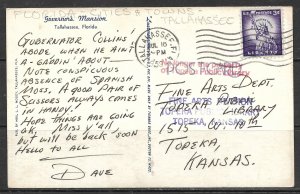 FLORIDA CITIES & TOWNS
TALLAHASSEE
Governor's Mansion
Tallahassee, Florida
GUBERNATOR COLLINS'
ABODE WHEN HE AIN'T
A-GADDIN' ABOUT
NOTE CONSPICUOUS
ABSENCE OF SPANISH
MOSS. A GOOD PAIR OF
SCISSORS ALWAYS COMES
IN HANDY!
HOPE THINGS ARE GOING
OK, MISS Y'ALL
BUT WILL BE BACK SOON
HELLO TO ALL
DAVE
TALLAHASSEE, FLA.
JUL 10
PM
POST CARD
FINE ARTS DEPT.
TOPEKA PUBLIC LIBRARY
1515 W. 10TH
TOPEKA,
KANSAS.
FINE ARTS DEPARTMENT
TOPEKA PUBLIC LIBRARY
TOPEKA, KANSAS
LIBERTY
3¢